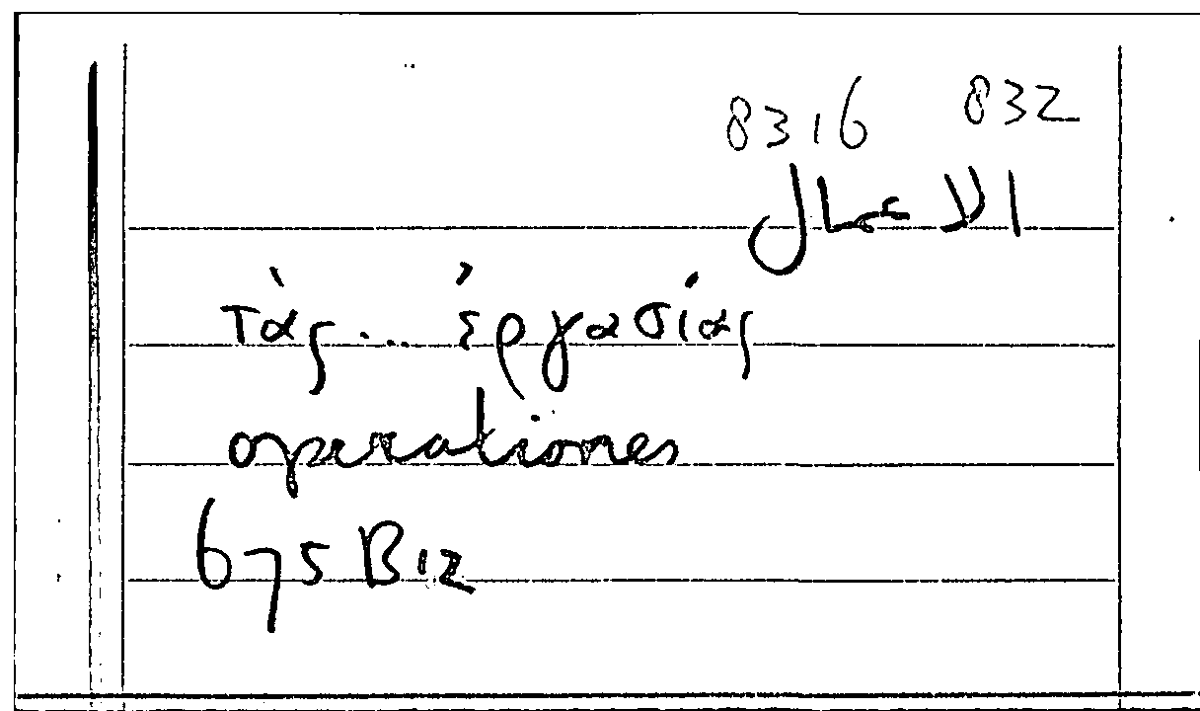 8316 832
τὰς... ἐργασίας
operationes
675 B12